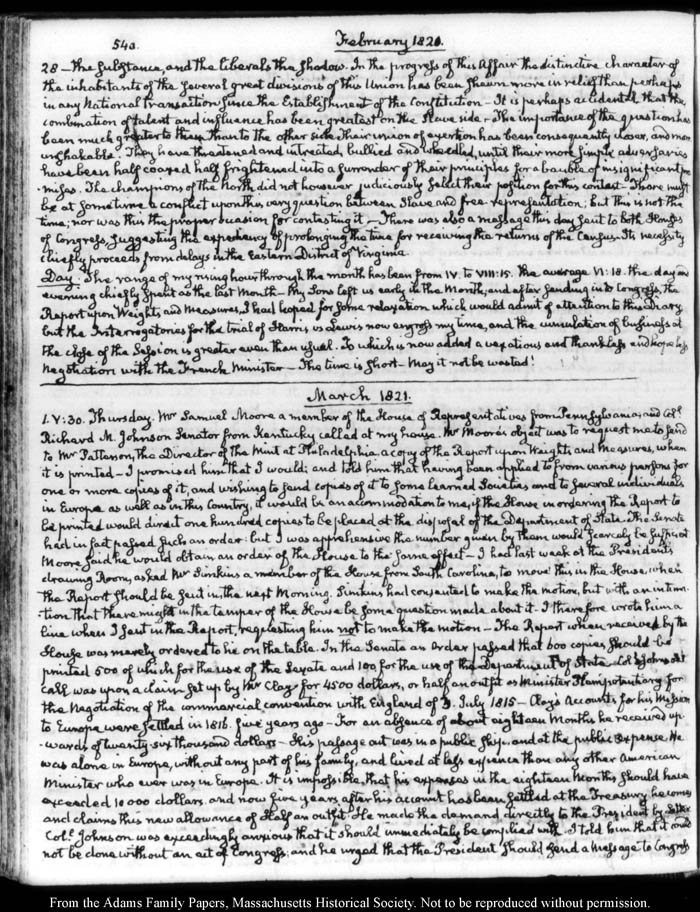 540.
February 1821.
28 — the substance, and the liberals the shadow. In the progress of this affair the distinctive character of
the inhabitants of the several great divisions of this Union has been shewn more in relief than perhaps
in any National transaction since the Establishment of the Constitution — It is perhaps accidental that the
combination of talent and influence has been greatest on the slave side — The importance of the question has
been much greater to them than to the other side. Their union of exertion has been consequently closer, and more
unshakable. They have threatened and intreated, bullied and wheedled, until their more simple adversaries
have been half coaxed half frightened into a surrender of their principles for a bauble of insignificant pro-
-mises. The champions of the North did not however judiciously select their position for this contest — There must
be at some time a conflict upon this very question between slave and free representation; but this is not the
time; nor was this the proper occasion for contesting it. — There was also a message this day sent to both Houses
of Congress, suggesting the expediency of prolonging the time for receiving the returns of the Census. Its necessity
chiefly proceeds from delays in the Eastern District of Virginia.
Day: The range of my rising hour through the month has been from IV. to VIII:15. the average VI:18. the day and
evening chiefly spent as the last Month — My Sons left us early in the Month, and after sending in to Congress, the
Report upon Weights and Measures, I had hoped for some relaxation which would admit of attention to this Diary
but the Interrogatories for the trial of Harris vs Lewis now engross my time, and the cumulation of business at
the close of the Session is greater even than usual. To which is now added a vexatious and thankless and hopeless
negotiation with the French Minister — The time is short — May it not be wasted!
March 1821.
1. V:30. Thursday. Mr Samuel Moore a member of the House of Representatives from Pennsylvania, and Coll.
Richard M. Johnson Senator from Kentucky called at my house. Mr Moore's object was to request me to send
to Mr Patterson, the Director of the Mint at Philadelphia a copy of the Report upon Weights and Measures, when
it is printed — I promised him that I would; and told him that having been applied to from various persons for
one or more copies of it, and wishing to send copies of it to some learned Societies and to several individuals
in Europe as well as in this Country, it would be an accommodation to me, if the House in ordering the Report to
be printed would direct one hundred copies to be placed at the disposal of the Department of State. The Senate
had in fact passed such an order: but I was apprehensive the number given by them would scarcely be sufficient
Moore said he would obtain an order of the House to the same effect — I had last week at the President's
drawing Room, asked Mr Simkins a member of the House from South Carolina, to move this in the House, when
the Report should be sent in the next Morning. Simkins had consented to make the motion, but with an intima-
-tion that there might in the temper of the House be some question made about it. I therefore wrote him a
line when I sent in the Report, requesting him not to make the motion — The Report when received by the
House was merely ordered to lie on the table. In the Senate an Order passed that 600 copies should be
printed 500 of which for the use of the Senate and 100 for the use of the Department of State. Coll Johnson's
call was upon a claim set up by Mr Clay for 4500 dollars, or half an outfit as Minister Plenipotentiary for
the Negotiation of the commercial convention with England of 3. July 1815 — Clay's Accounts for his Mission
to Europe were settled in 1816. five years ago — For an absence of about eighteen Months he received up-
-wards of twenty six thousand dollars — His passage out was in a public ship. and at the public expense. He
was alone in Europe, without any part of his family, and lived at less expence than any other American
Minister who ever was in Europe. It is impossible that his expenses in the eighteen Months should have
exceeded 10 000 dollars. and now five years after his account has been settled at the Treasury he comes
and claims this new allowance of Half an outfit. He made the demand directly to the President by Letter
Coll. Johnson was exceedingly anxious that it should immediately be complied with. I told him that it could
not be done without an act of Congress; and he urged that the President should send a Message to Congress
From the Adams Family Papers, Massachusetts Historical Society. Not to be reproduced without permission.